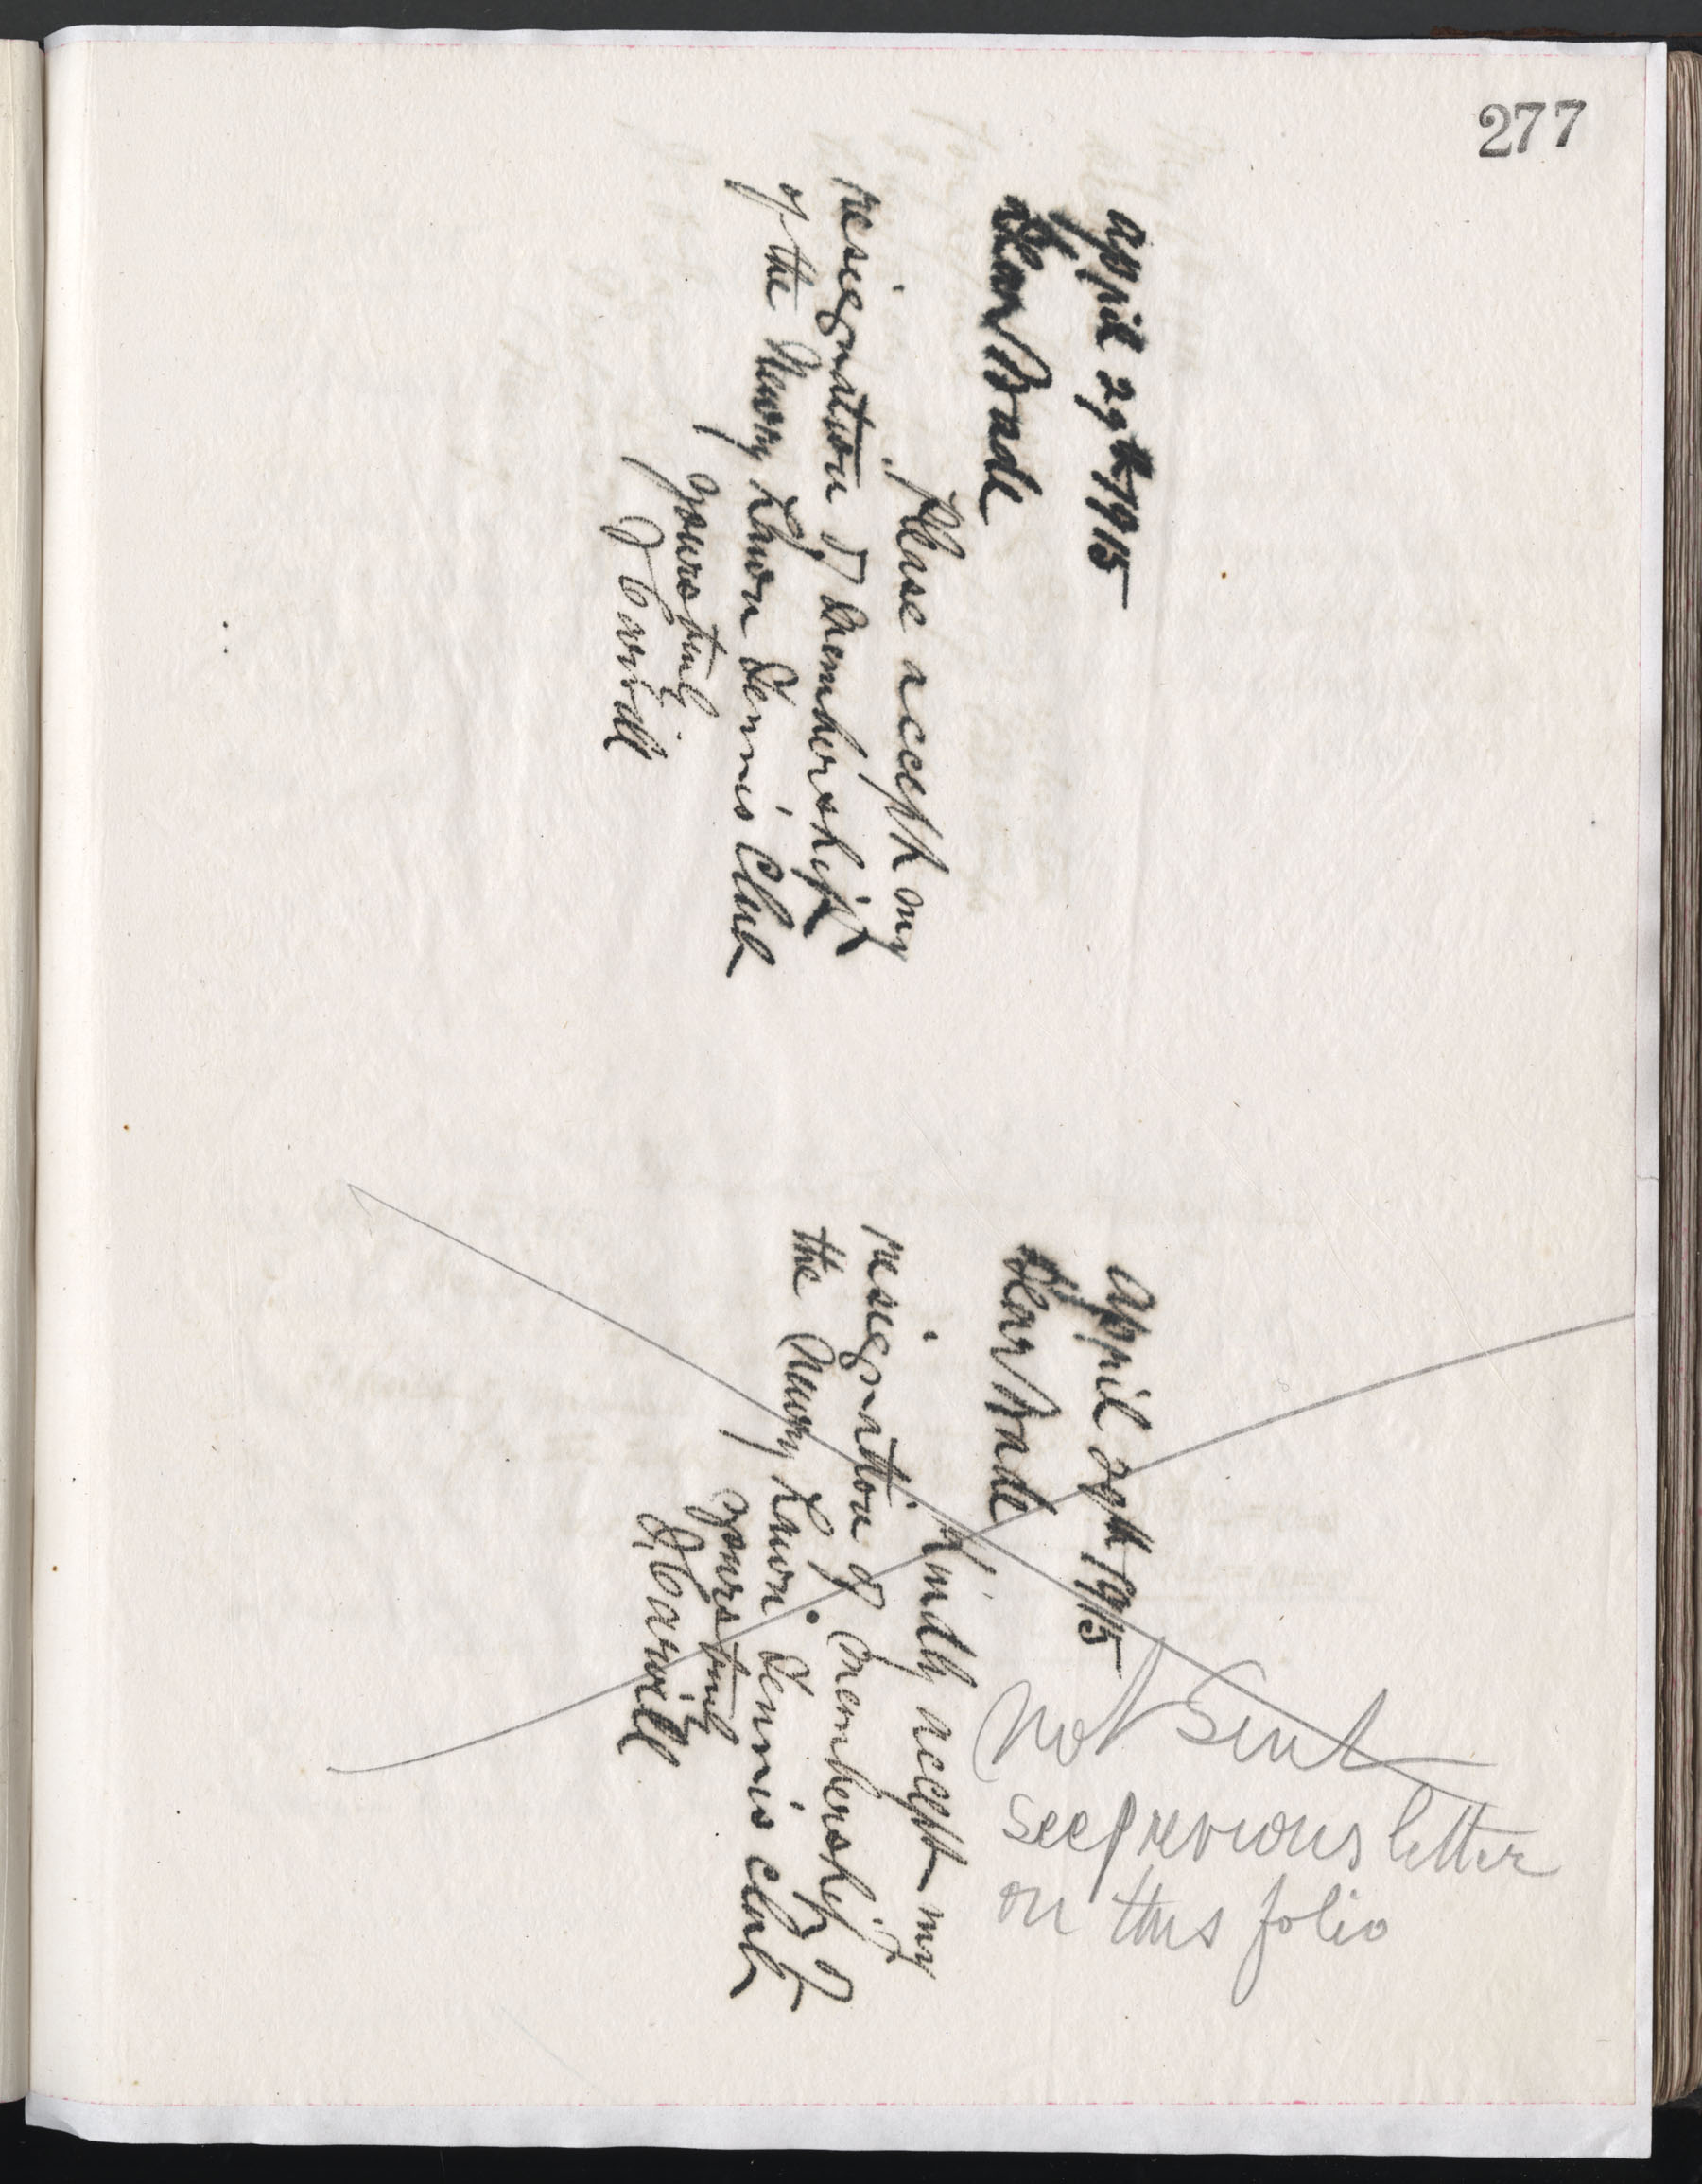 277
April 29th 1915
Dear Wade
Please accept my
resignation of membership
of the Newry Lawn Tennis Club
Yours truly
J Carvill
April 29th 1915
Dear Wade
Kindly accept my
resignation of membership of
the Newry Lawn Tennis Club
Yours truly
J Carvill
not Sent
see previous letter
on this folio